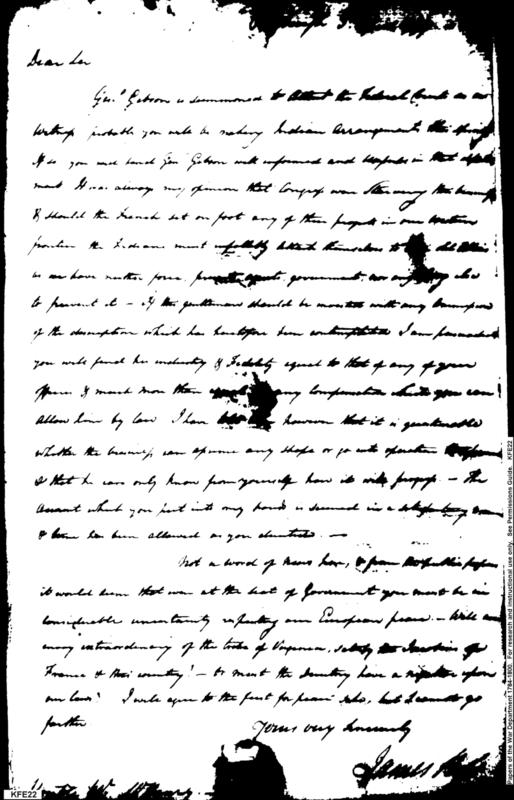 Dear Sir
Genl. Gibson is summoned to Attend the Federal Court as a
Witness probable you will be making Indian Arrangements this Spring
If so you will find Genl Gibson well informed and useful in that depart
ment It was always my opinion that Congress were Starving the business
& should the French set on foot any of their projects in our Western
frontier the Indians must attach themselves to old Allies
as we have neither force, government, nor any thing else
to prevent it – If this gentleman should be invested with any business
of the description which has heretofore been contemplated I am persuaded
you will find his industry & Fidelity equal to that of any of your
officers & much more than any Compensation which you can
Allow him by law I have however that it is questionable
whether the business can assume any shape or go into operation
& that he can only know from yourself how it will progress – The
Amount which you put into my hands is secured in a satisfactory manner
& time has been allowed as you directed. —
Not a word of News here, & from the public papers
it would seem that even at the Seat of Government you must be in
considerable uncertainty respecting our European peace. – Will an
envoy extraordinary of the tribe of Virginia, satisfy the Jacobins of
France & this country? – or must the Directory have a negative upon
our laws? I will agree to the first for peace' sake, but I cannot go
further
Yours very Sincerely
James
KFE22
Papers of the War Department 1784-1800. For research and instructional use only. See Permissions Guide. KFE22